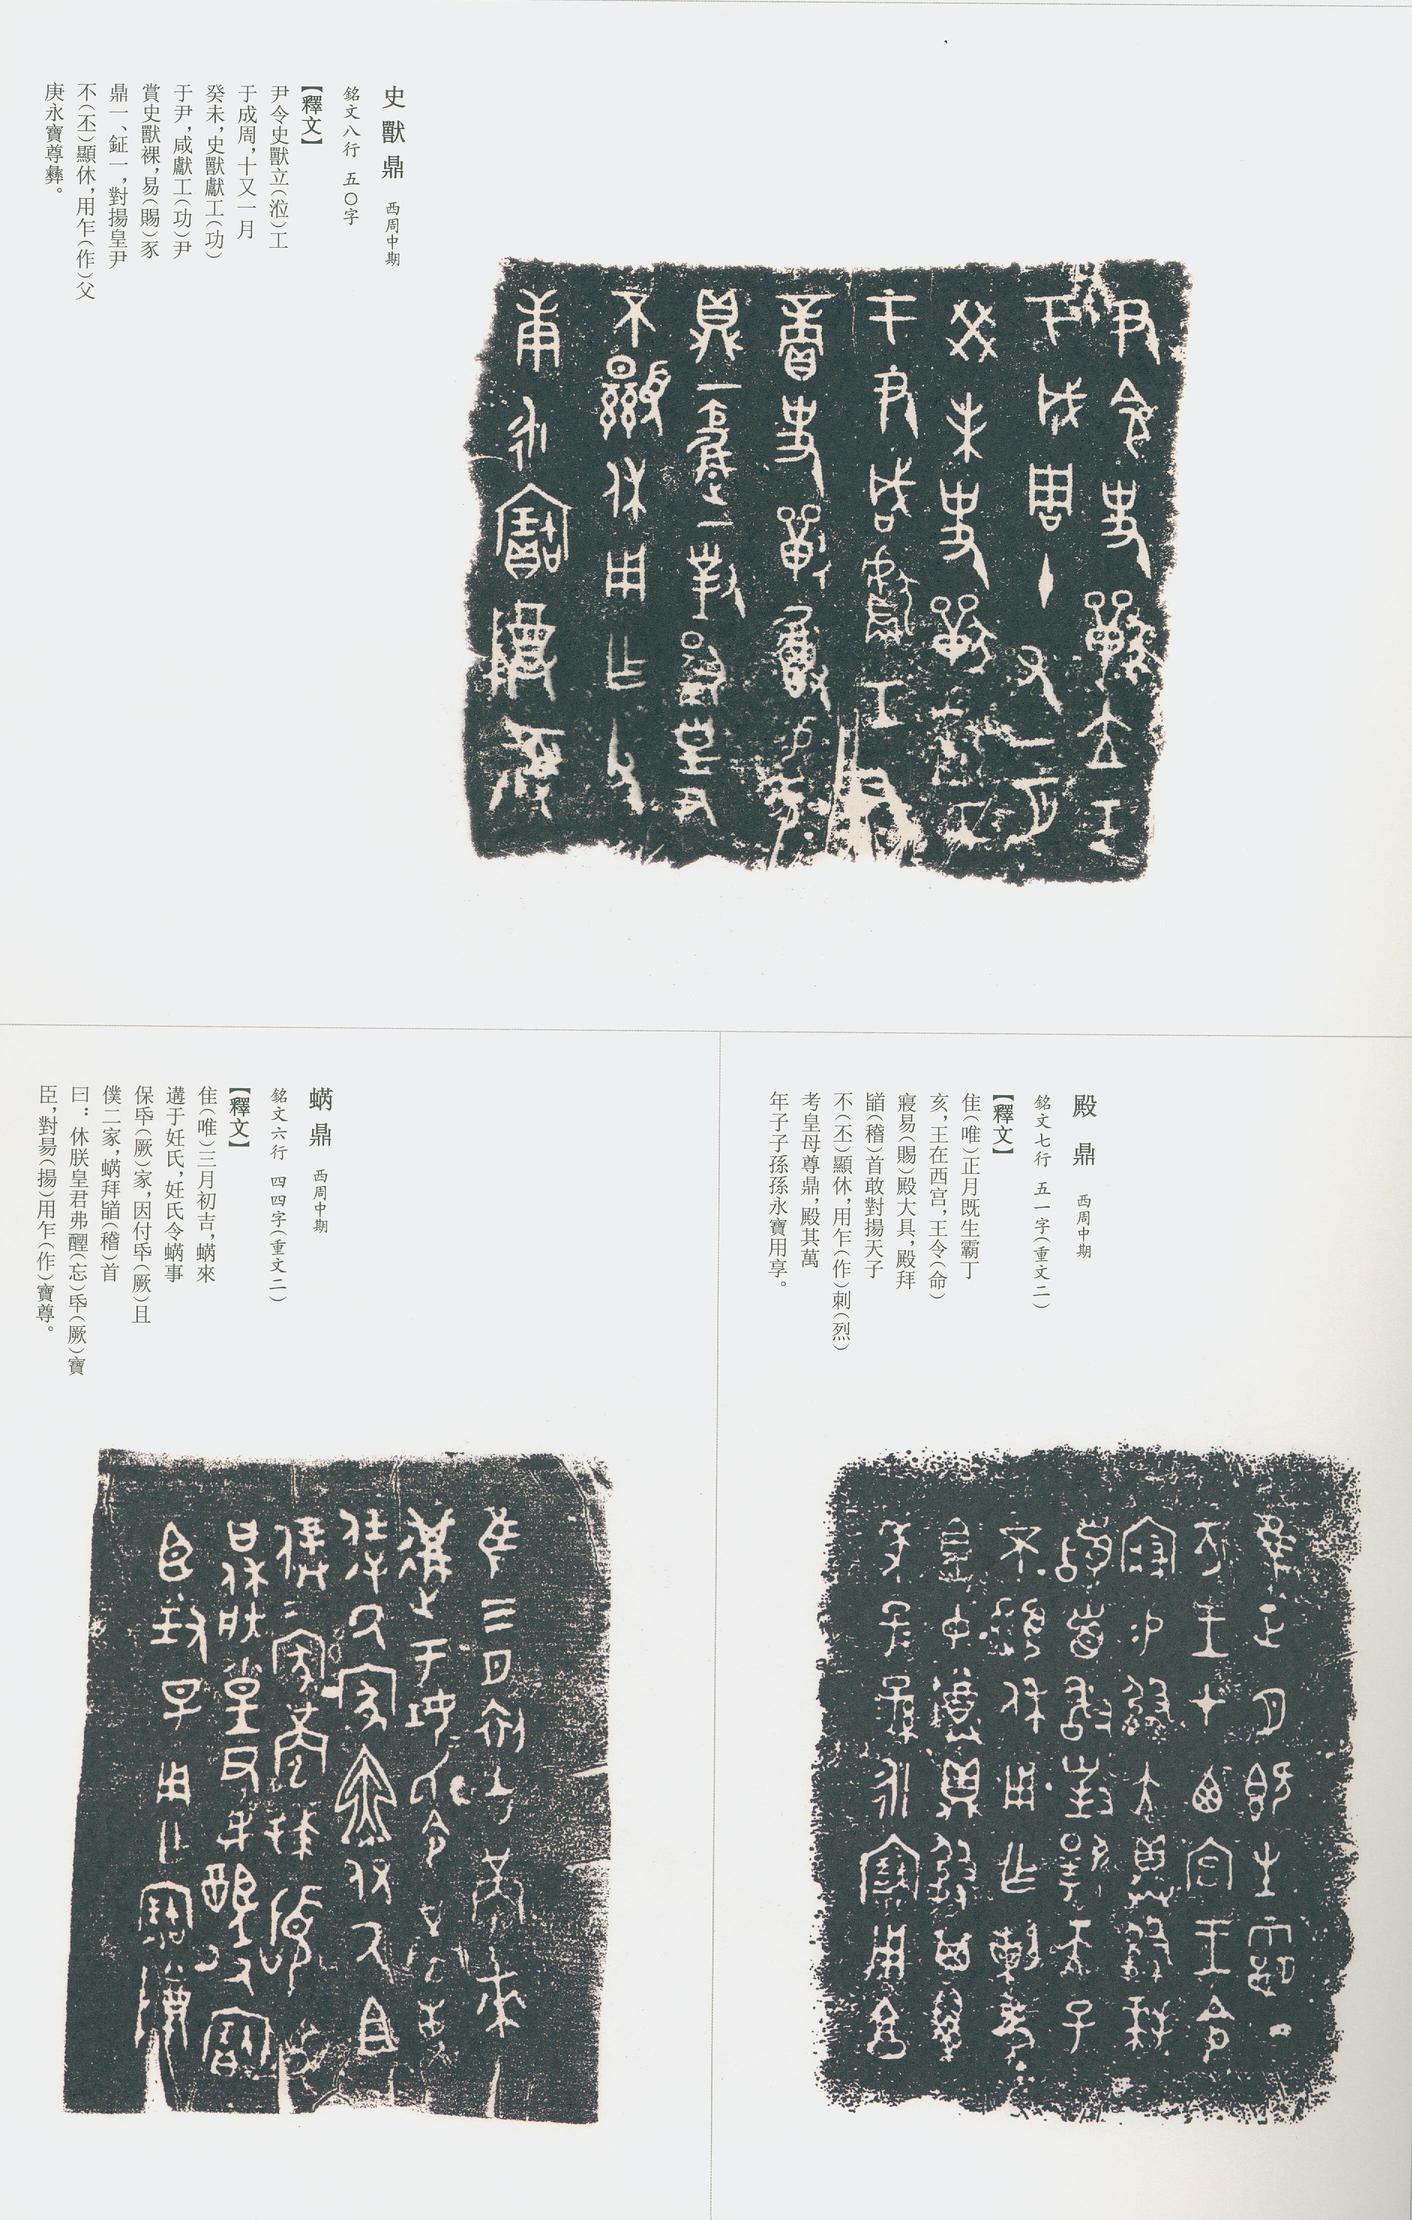 史獸鼎 西周中期
銘文八行 五〇字
【釋文】
尹令史獸立(涖)工
于成周,十又一月
癸未,史獸獻工(功)
于尹,咸獻工(功)尹
賞史獸祼,易(賜)豕
鼎一、鉦一,對揚皇尹
不(丕)顯休,用乍(作)父
庚永寶尊彝。
殿鼎 西周中期
銘文七行 五一字(重文二)
【釋文】
隹(唯)正月既生霸丁
亥,王在西宫,王令(命)
寢易(賜)殿大具,殿拜
䭫(稽)首敢對揚天子
不(丕)顯休,用乍(作)剌(烈)
考皇母尊鼎,殿其萬
年子子孫孫永寶用享。
䗋鼎 西周中期
銘文六行 四四字(重文二)
【釋文】
隹(唯)三月初吉,䗋來
遘于妊氏,妊氏令䗋事
保氒(厥)家,因付氒(厥)且
僕二家,䗋拜䭫(稽)首
曰:休朕皇君弗醒(忘)氒(厥)寶
臣,對昜(揚)用乍(作)寶尊。